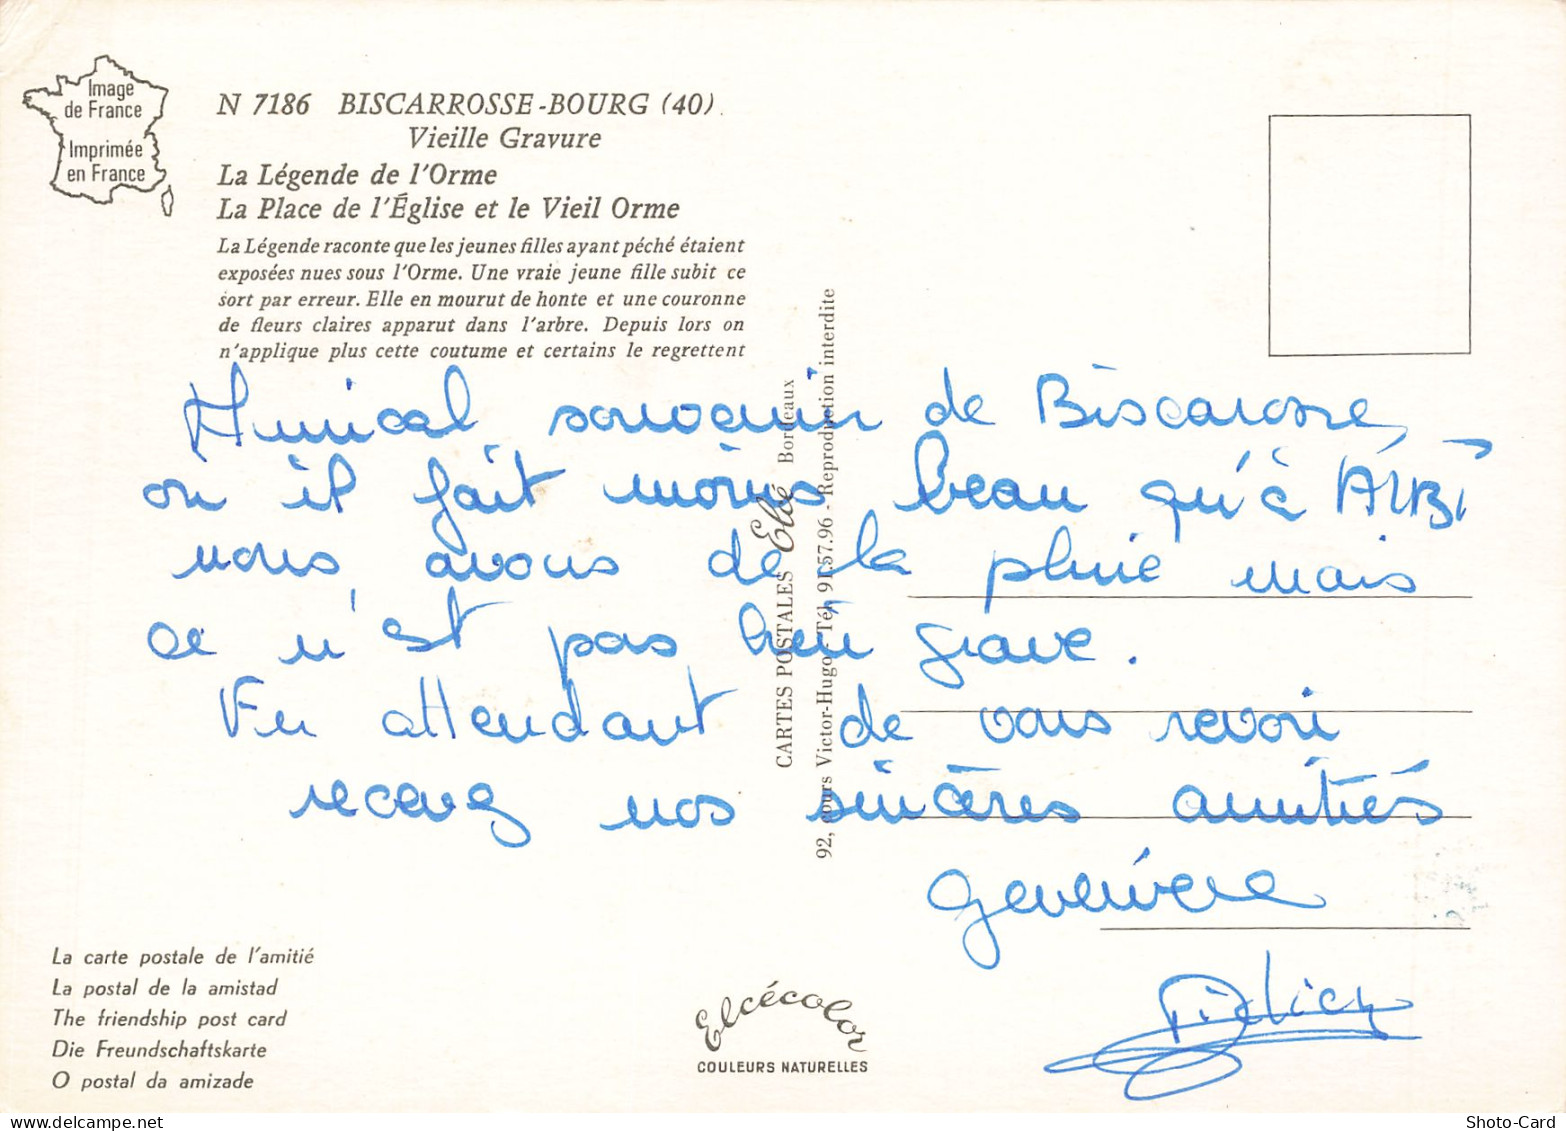 Image
de France
Imprimée
en France
N 7186 BISCARROSSE-BOURG (40)
Vieille Gravure
La Légende de l'Orme
La Place de l'Église et le Vieil Orme
La Légende raconte que les jeunes filles ayant péché étaient
exposées nues sous l'Orme. Une vraie jeune fille subit ce
sort par erreur. Elle en mourut de honte et une couronne
de fleurs claires apparut dans l'arbre. Depuis lors on
n'applique plus cette coutume et certains le regrettent
Amical souvenir de Biscarosse,
où il fait moins beau qu'à ALBI
nous avons de la pluie mais
ce n'est pas bien grave.
En attendant de vous revoir
recevez nos sincères amitiés
Geneviève
CARTES POSTALES Elcé Bordeaux
92, cours Victor-Hugo - Tél. 91.57.96 - Reproduction interdite
La carte postale de l'amitié
La postal de la amistad
The friendship post card
Die Freundschaftskarte
O postal da amizade
Elcécolor
COULEURS NATURELLES
Shoto-Card